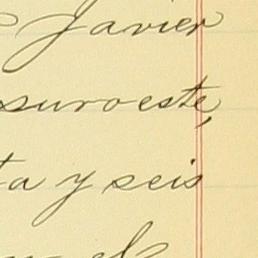 Javier
suroeste,
ta y seis
el